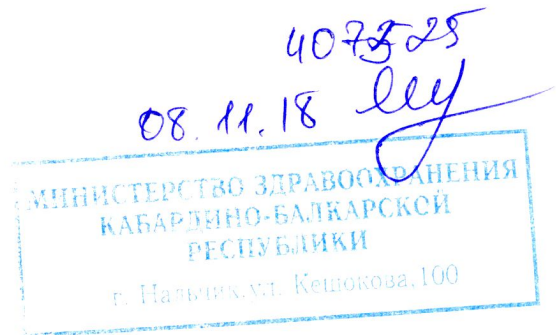 08.11.18
МИНИСТЕРСТВО ЗДРАВООХРАНЕНИЯ
КАБАРДИНО-БАЛКАРСКОЙ
РЕСПУБЛИКИ
г. Нальчик, ул. Кешокова, 100